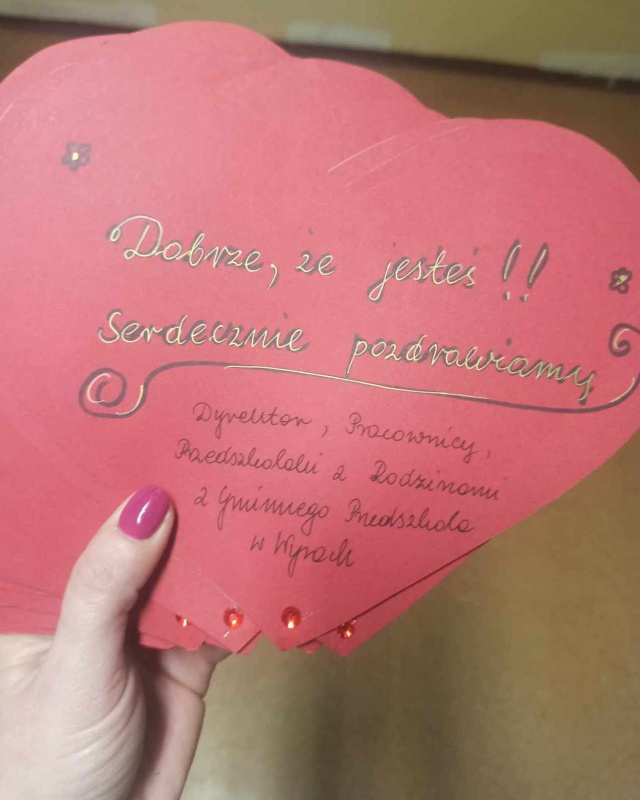 Dobrze, że jesteś !!
Serdecznie pozdrawiamy
Dyrektor, Pracownicy,
Przedszkolaki z Rodzinami
z Gminnego Przedszkola
w Wyrach